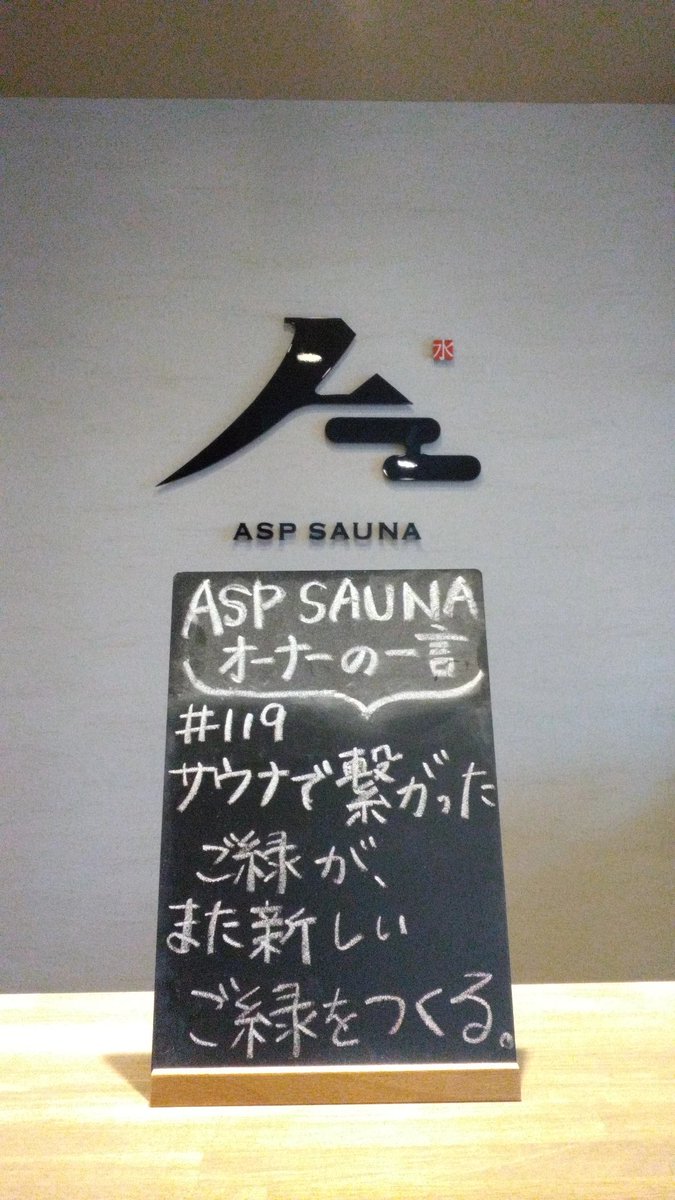 水
ASP SAUNA
ASP SAUNA
オーナーの一言
#119
サウナで繋がった
ご緑が、
また新しい
ご緑をつくる。